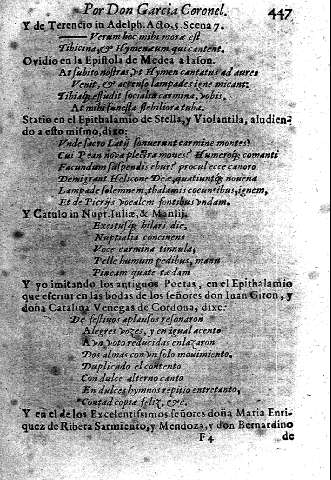 Por Don Garcia Coronel. 447
Y de Terencio in Adelph. Acto, 5. Scena 7.
Verum hoc mihi mora est
Tibicina, & Hymenæum qui cantent.
Ovidio en la Epistola de Medea a Iason.
Ut subito nostras, ut Hymen cantatus ad aures
Venit, & accenso lampades igne micant:
Tibiaque effudit socialia carmina, vobis,
At mihi funesta flebiliora tuba.
Statio en el Epithalamio de Stella, y Violantila, aludien-
do a esto mismo, dixo:
Unde sacro Latij sonuerunt carmine montes?
Cui Pean nova plectra moves? Humeroque comanti
Facundum suspendis ebur? procul ecce canoro
Demigrant Helicone Deæ, quatiuntque novena
Lampade solemnem, thalamis coeuntibus, ignem,
Et de Pierijs vocalem fontibus undam.
Y Catulo in Nupt. Iuliæ, & Manlij.
Excitusque hilari die,
Nuptialia concinens
Voce carmina tinnula,
Pelle humum pedibus, manu
Pineam quate tædam
Y yo imitando los antiguos Poetas, en el Epithalamio
que escrivi en las bodas de los señores don Iuan Giron, y
doña Catalina Venegas de Cordona, dixe:
De festivos aplausos resonaron
Alegres vozes, y en igual acento
A un voto reducidas enlazaron
Dos almas con un solo movimiento.
Duplicado el contento
Con dulce alterno canto
En dulces hymnos repitio entretanto,
Contad copia feliz, &c.
Y en el de los Excelentissimos señores doña Maria Enri-
quez de Ribera Sarmiento, y Mendoza, y don Bernardino
Ff 4 de